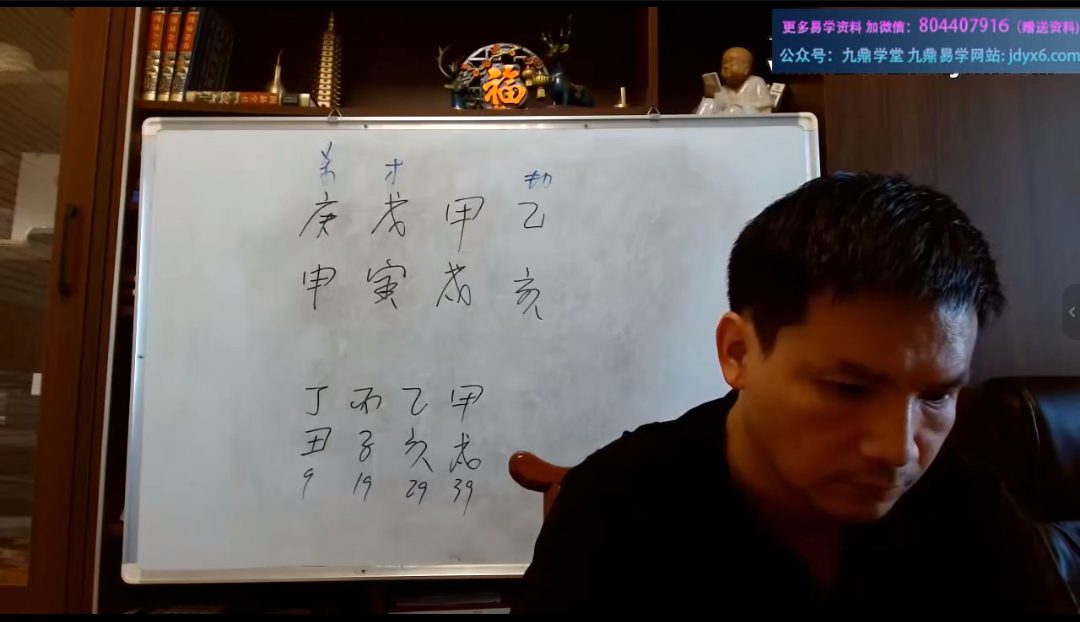 更多易学资料 加微信：804407916（赠送资料）
公众号：九鼎学堂 九鼎易学网站: jdyx6.com
福
杀 才 劫
庚 戊 甲 乙
申 寅 戌 亥
丁 丙 乙 甲
丑 子 亥 戌
9 19 29 39